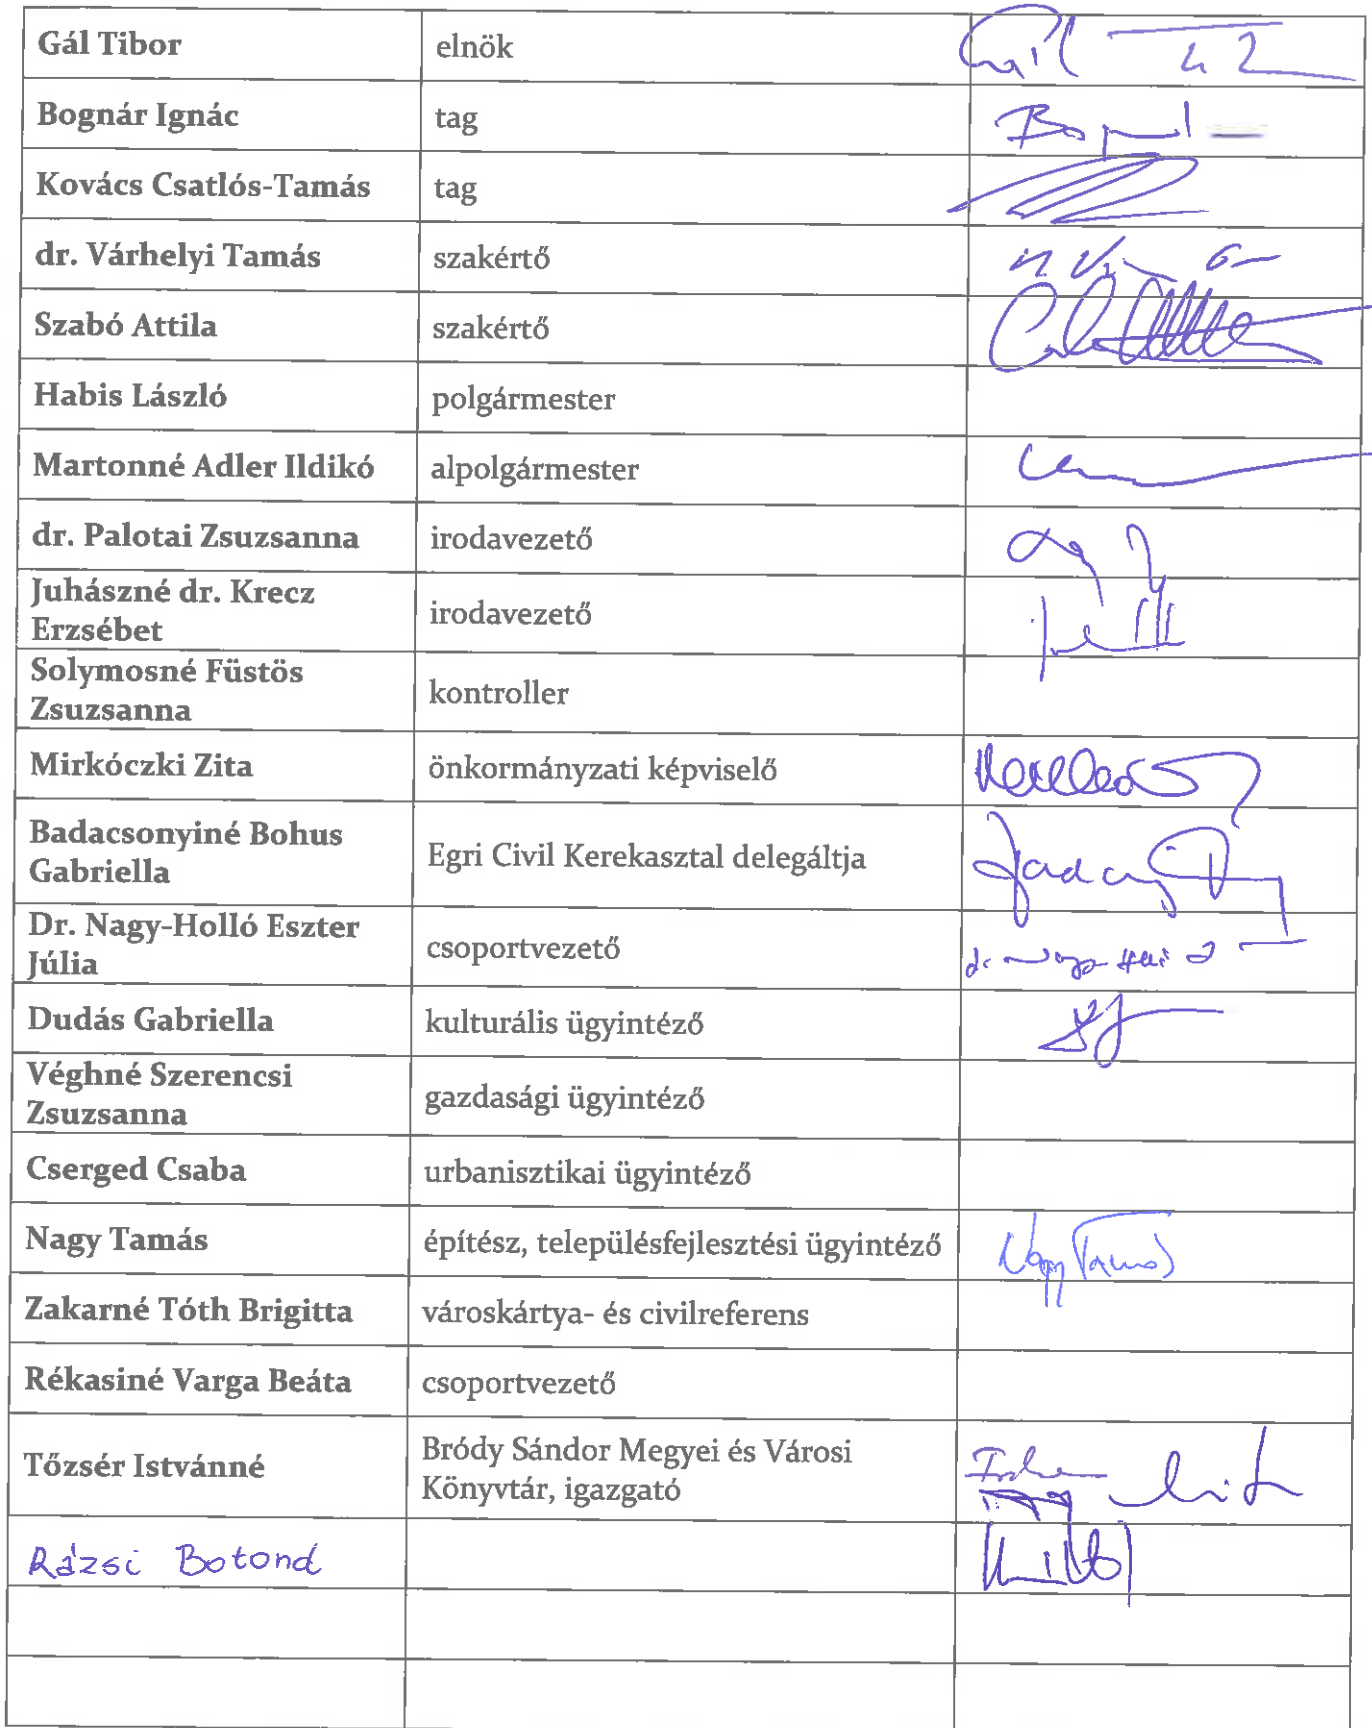 Gál Tibor elnök
Bognár Ignác tag
Kovács Csatlós-Tamás tag
dr. Várhelyi Tamás szakértő
Szabó Attila szakértő
Habis László polgármester
Martonné Adler Ildikó alpolgármester
dr. Palotai Zsuzsanna irodavezető
Juhászné dr. Krecz
Erzsébet
irodavezető
Solymosné Füstös
Zsuzsanna
kontroller
Mirkóczki Zita önkormányzati képviselő
Badacsonyiné Bohus
Gabriella
Egri Civil Kerekasztal delegáltja
Dr. Nagy-Holló Eszter
Júlia
csoportvezető
Dudás Gabriella kulturális ügyintéző
Véghné Szerencsi
Zsuzsanna
gazdasági ügyintéző
Cserged Csaba urbanisztikai ügyintéző
Nagy Tamás építész, településfejlesztési ügyintéző Nagy Tamás
Zakarné Tóth Brigitta városkártya- és civilreferens
Rékasiné Varga Beáta csoportvezető
Tőzsér Istvánné
Bródy Sándor Megyei és Városi
Könyvtár, igazgató
Rázsi Botond